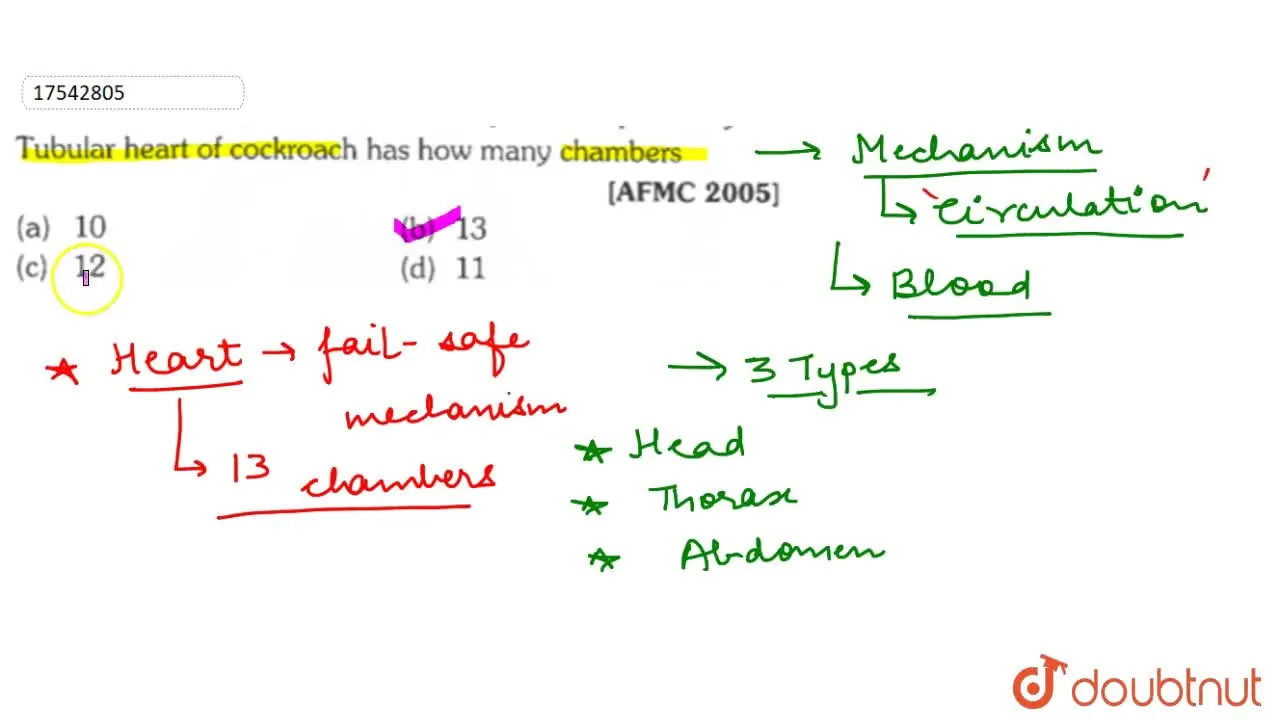 17542805
Tubular heart of cockroach has how many chambers
[AFMC 2005]
(a) 10
(b) 13
(c) 12
(d) 11
→ Mechanism
↳ 'Circulation'
↳ Blood
★ Heart → fail-safe
mechanism
↳ 13 chambers
→ 3 Types
★ Head
★ Thorax
★ Abdomen
doubtnut